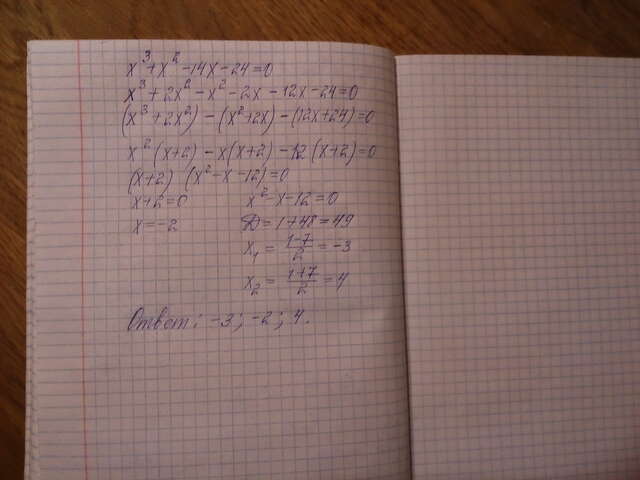 x³+x²-14x-24=0
x³+2x²-x²-2x-12x-24=0
(x³+2x²)-(x²+2x)-(12x+24)=0
x²(x+2)-x(x+2)-12(x+2)=0
(x+2) (x²-x-12)=0
x+2=0 x²-x-12=0
x=-2 D=1+48=49
x₁ = (1-7)/2 = -3
x₂ = (1+7)/2 = 4
Ответ: -3; -2; 4.